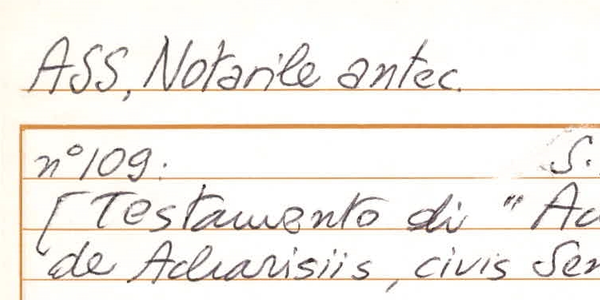 ASS, Notarile antec.
n° 109. S.
[Testamento di "
de Acharisiis, civis Sen